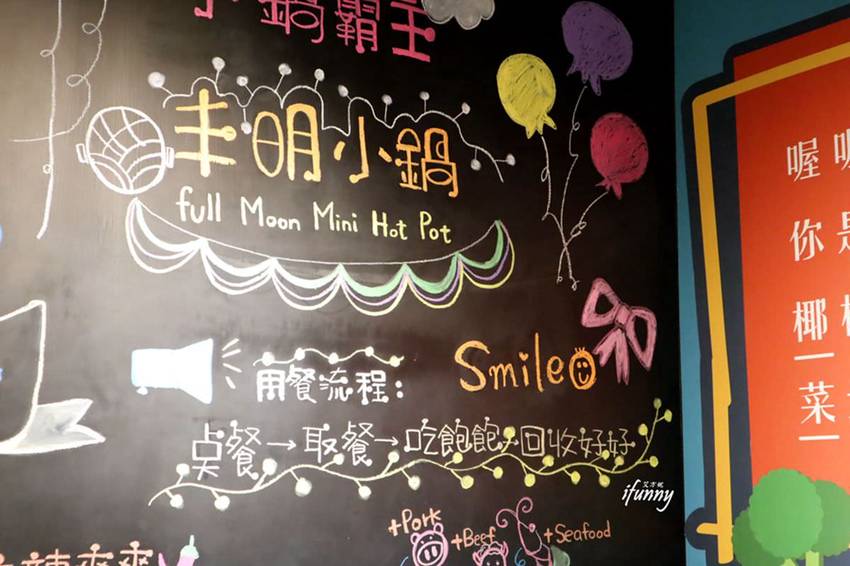 小鍋霸王
丰明小鍋
full Moon Mini Hot Pot
Smile
用餐流程:
点餐→取餐→吃飽飽→回收好好
艾方妮
ifunny
+Pork
+Beef
+Seafood
辣爽爽
喔
你是
椰
菜